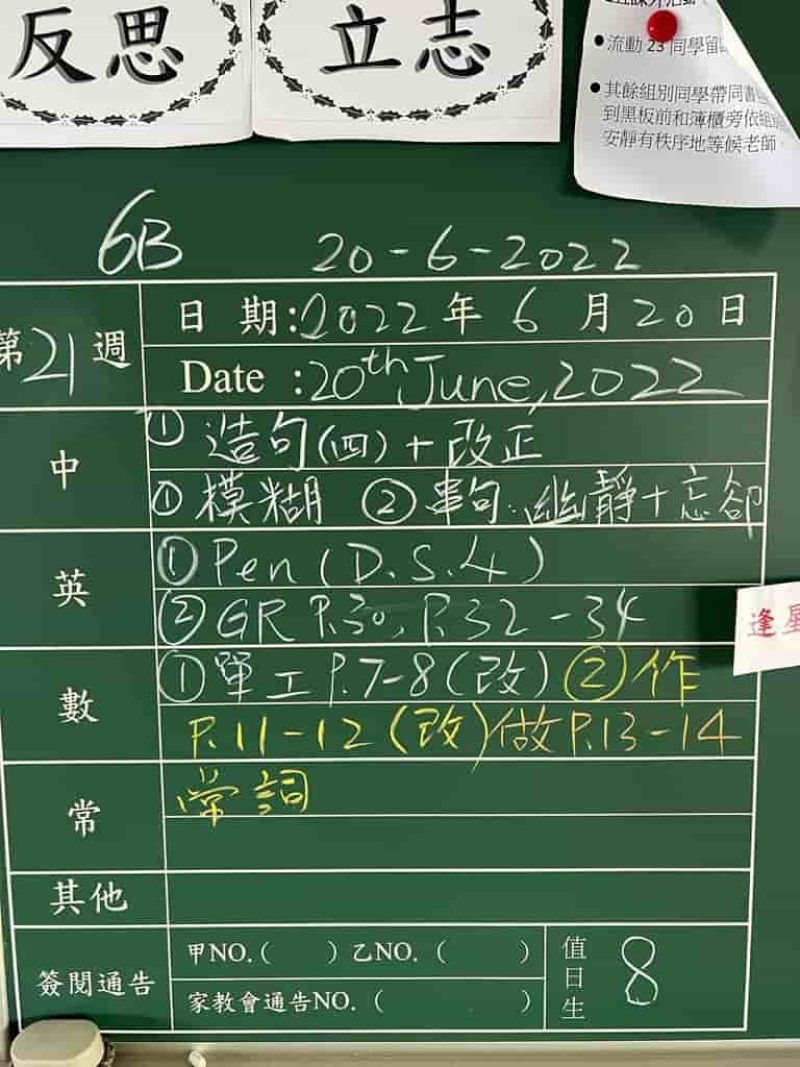 反思
立志
流動 23 同學留
其餘組別同學帶同書
到黑板前和簿櫃旁依組
安靜有秩序地等候老師
6B 20-6-2022
第21週
日 期:2022年6月20日
Date :20th June, 2022
中
① 造句(四)+改正
① 模糊 ② 串句:幽靜+忘卻
英
① Pen (D.S.4)
② GR P.30, P.32-34
逢星
數
① 單工 P.7-8(改) ② 作
P.11-12(改)做P.13-14
常
常詞
其他
簽閱通告
甲NO.( )乙NO.( )
家教會通告NO.( )
值日生
8